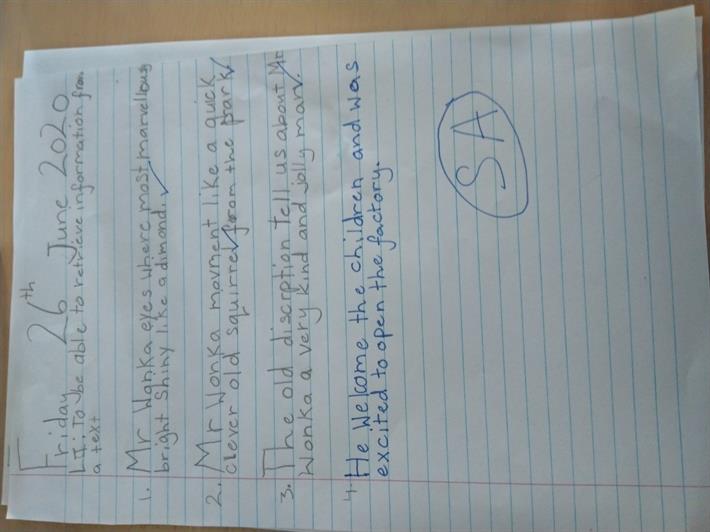 Friday 26th June 2020
L.I: To be able to retrieve information from
a text
1. Mr Wonka eyes where most marvellous
bright Shiny like a dimond.
2. Mr Wonka movment like a quick
clever old squirrel from the park
3. The old discrption tell us about Mr
Wonka a very kind and jolly man.
4. He welcome the children and was
excited to open the factory.
SA